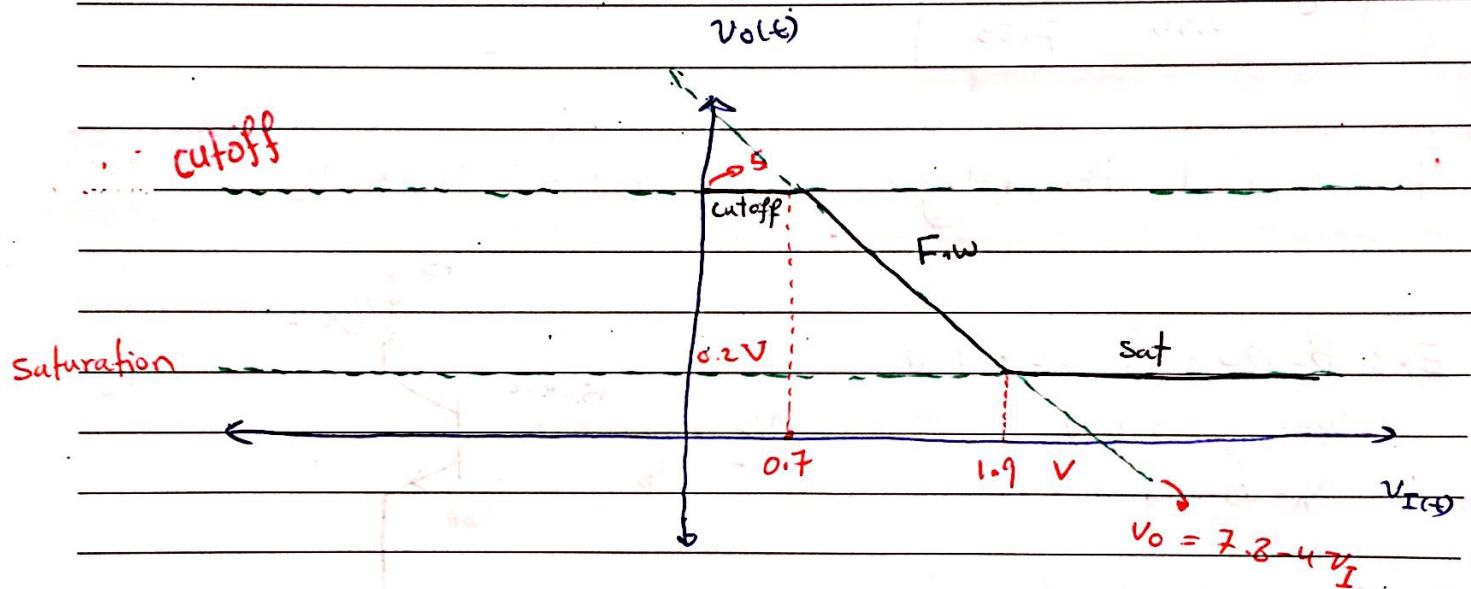 v₀(t)
cutoff
5
cutoff
F.W
0.2V
sat
saturation
0.7
1.9 V
v_I(t)
v₀ = 7.8-4v_I